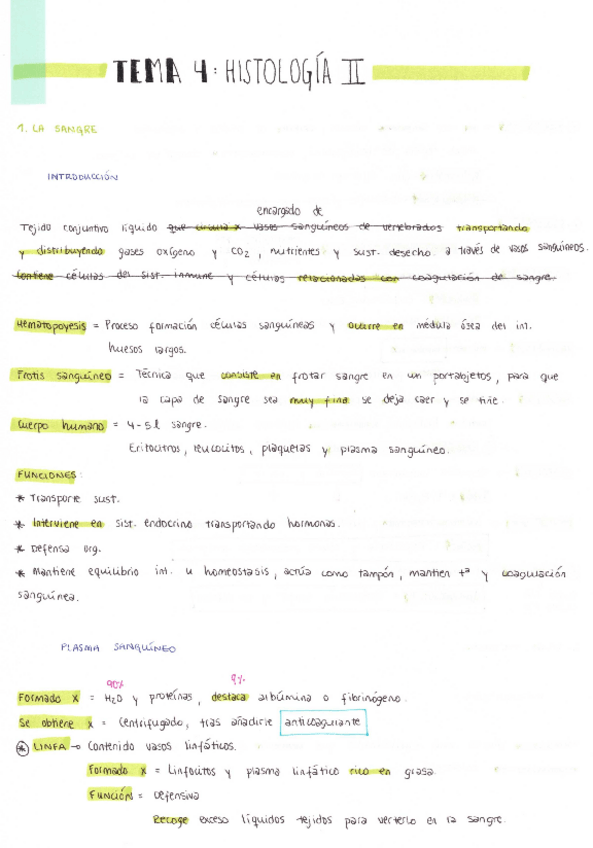 TEMA 4: HISTOLOGÍA II
1. LA SANGRE
INTRODUCCIÓN
encargado de
Tejido conjuntivo líquido que circula x vasos sanguíneos de vertebrados transportando
y distribuyendo gases oxígeno y CO2, nutrientes y sust. desecho a través de vasos sanguíneos.
Contiene células del sist. inmune y células relacionadas con coagulación de sangre.
Hematopoyesis = Proceso formación células sanguíneas y ocurre en médula ósea del int.
huesos largos.
Frotis sanguíneo = Técnica que consiste en frotar sangre en un portaobjetos, para que
la capa de sangre sea muy fina se deja caer y se tiñe.
Cuerpo humano = 4-5l sangre.
Eritocitros, leucocitos, plaquetas y plasma sanguíneo.
FUNCIONES:
* Transporte sust.
* Interviene en sist. endocrino transportando hormonas.
* Defensa org.
* Mantiene equilibrio int. u homeostasis, actúa como tampón, mantien tª y coagulación
sanguínea.
PLASMA SANGUÍNEO
90% 9%
Formado x = H2O y proteínas, destaca albúmina o fibrinógeno.
Se obtiene x = Centrifugado, tras añadirle anticoagulante
* LINFA → Contenido vasos linfáticos.
Formado x = Linfocitos y plasma linfático rico en grasa
FUNCIÓN = Defensiva
Recoge exceso líquidos tejidos para verterlo en la sangre.